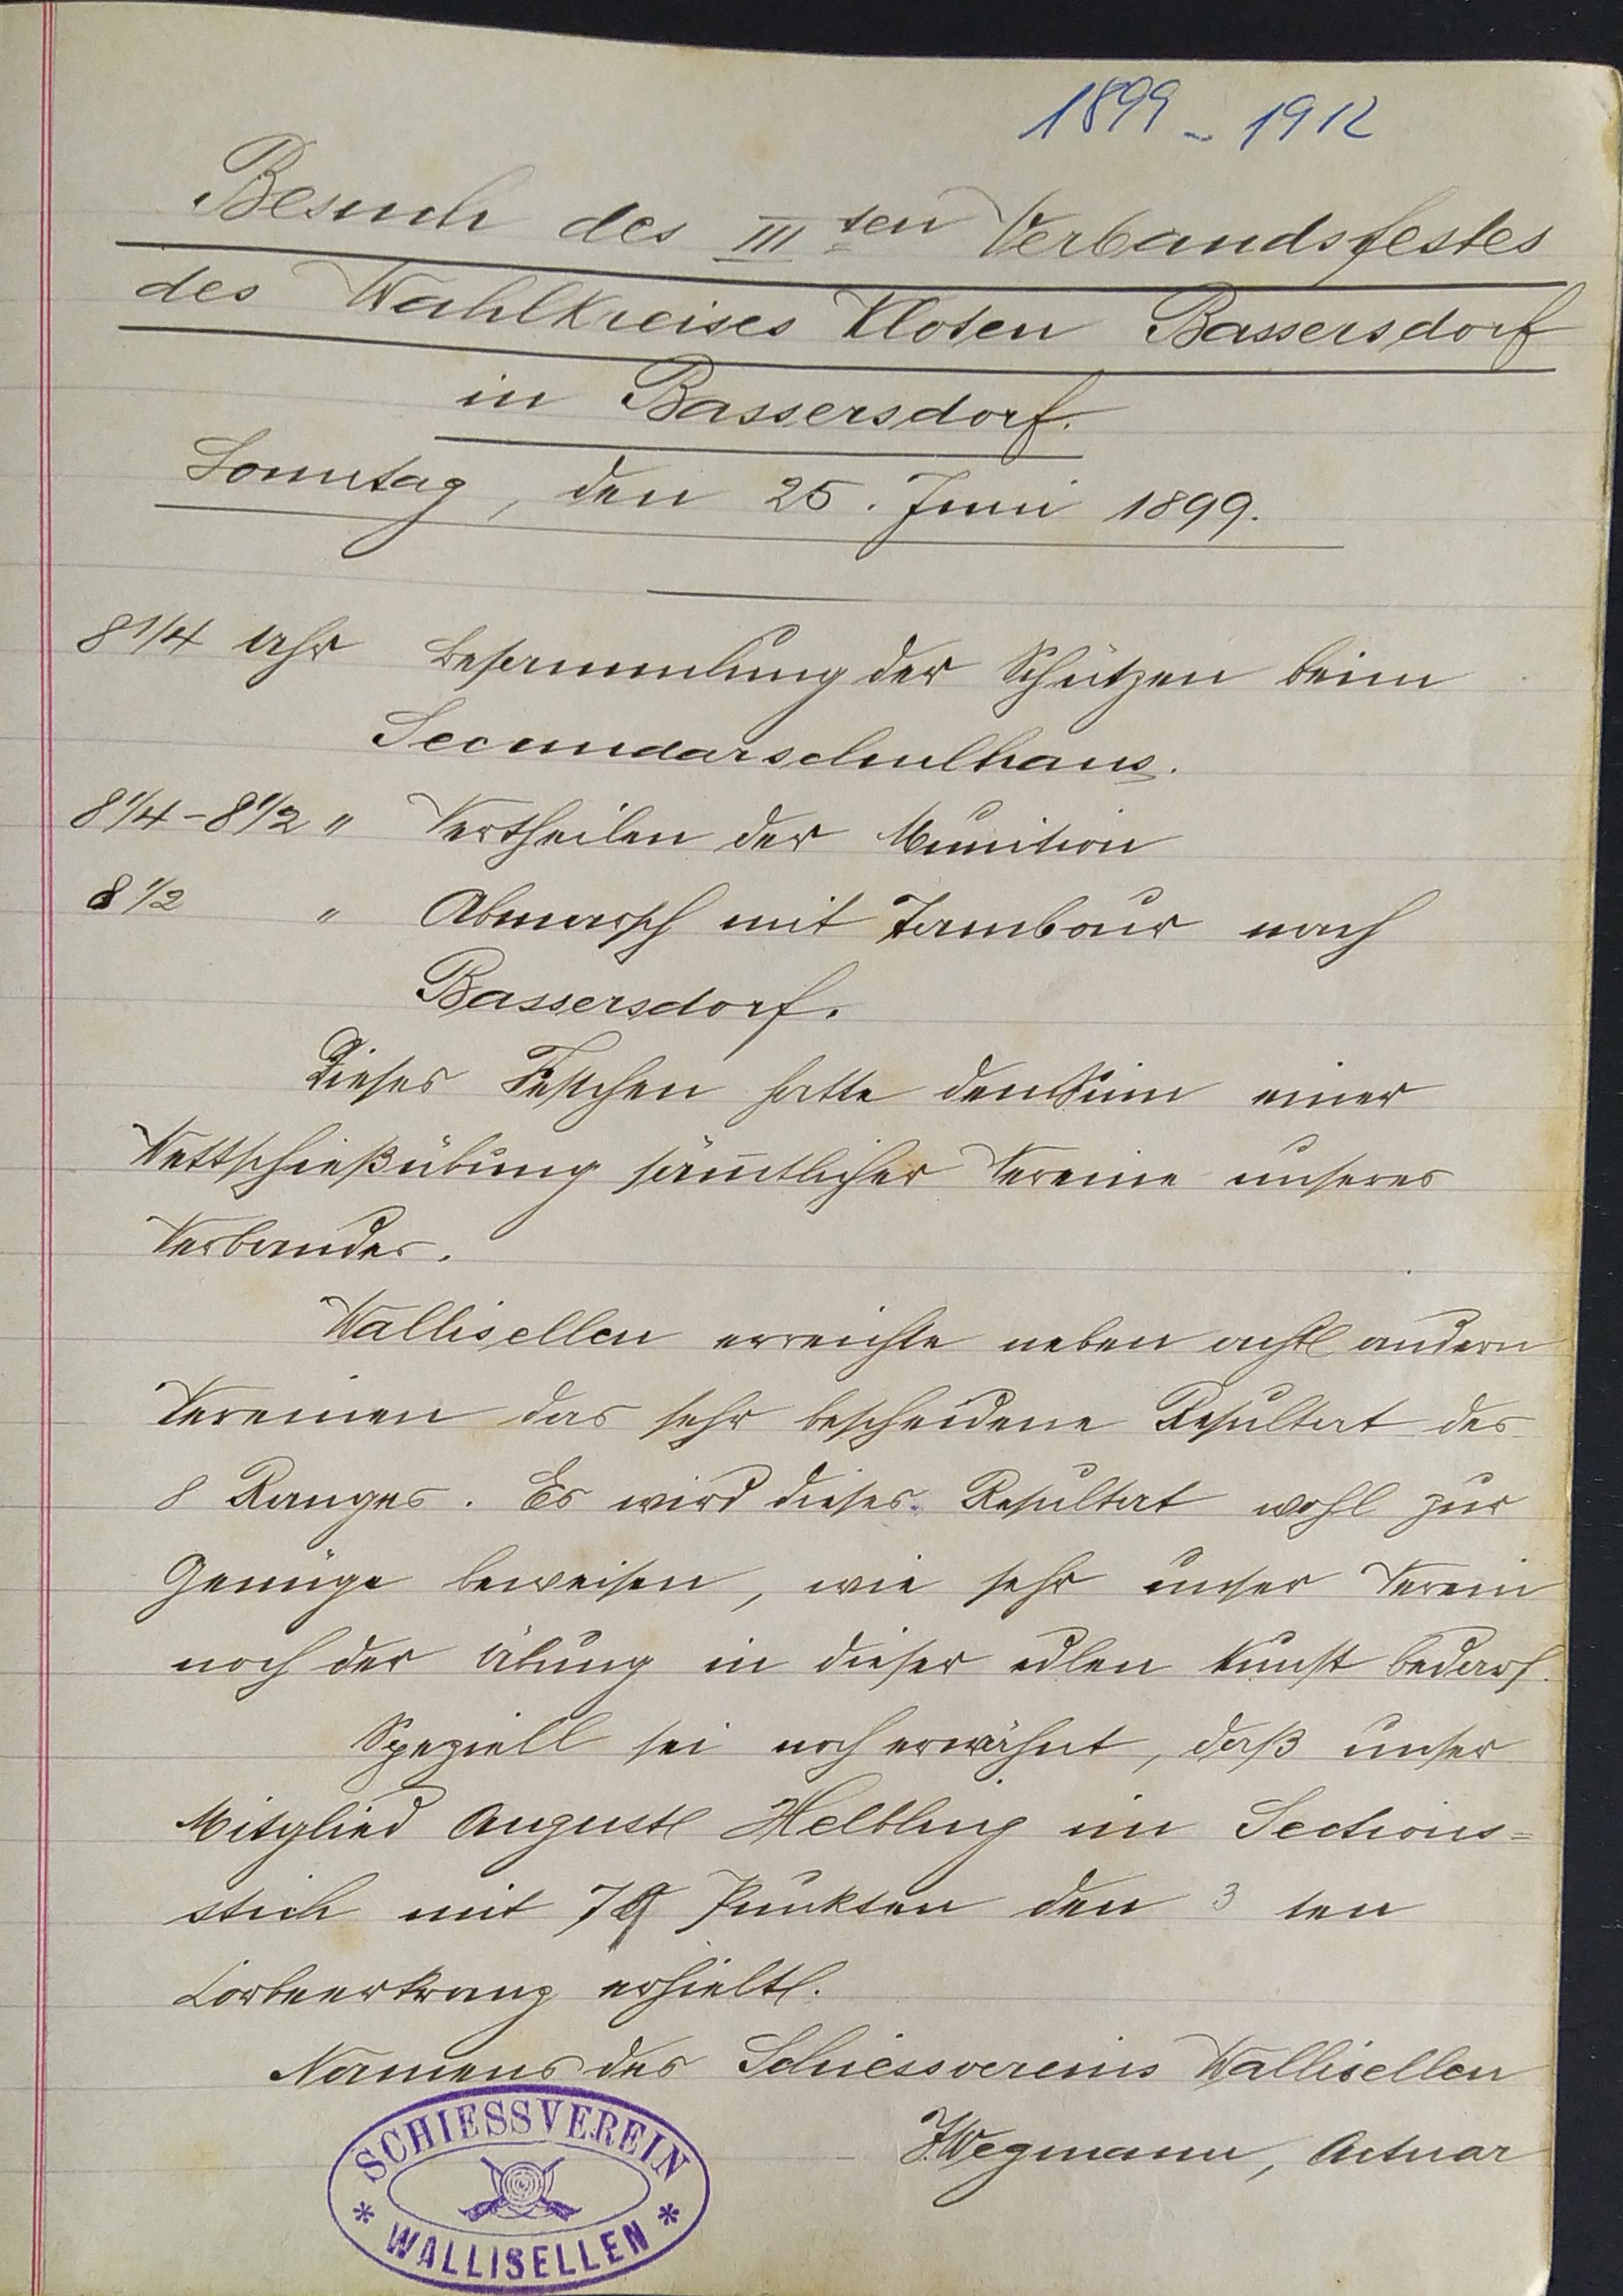 1899 - 1912
Besuch des III ten Verbandsfestes
des Wahlkreises Kloten Bassersdorf
in Bassersdorf.
Sonntag, den 25. Juni 1899.
8 1/4 Uhr Besammlung der Schützen beim
Secundarschulhaus.
8 1/4 - 8 1/2 " Vertheilen der Munition
8 1/2 " Abmarsch mit Tambour nach
Bassersdorf.
Dieses Festchen hatte den Sinn einer
Wettschießübung säm̅tlicher Vereine unseres
Verbandes.
Wallisellen erreichte neben acht andern
Vereinen das sehr bescheidene Resultat des
8 Ranges. Es wird dieses Resultat wohl zur
Genüge beweisen, wie sehr unser Verein
noch der Übung in dieser edlen Kunst bedarf.
Speziell sei noch erwähnt, daß unser
Mitglied August Helbling im Sections=
stich mit Punkten den 3 ten
Lorbeerkranz erhielt.
Namens des Schiessvereins Wallisellen
J. Wegmann, Actuar
SCHIESSVEREIN
* WALLISELLEN *